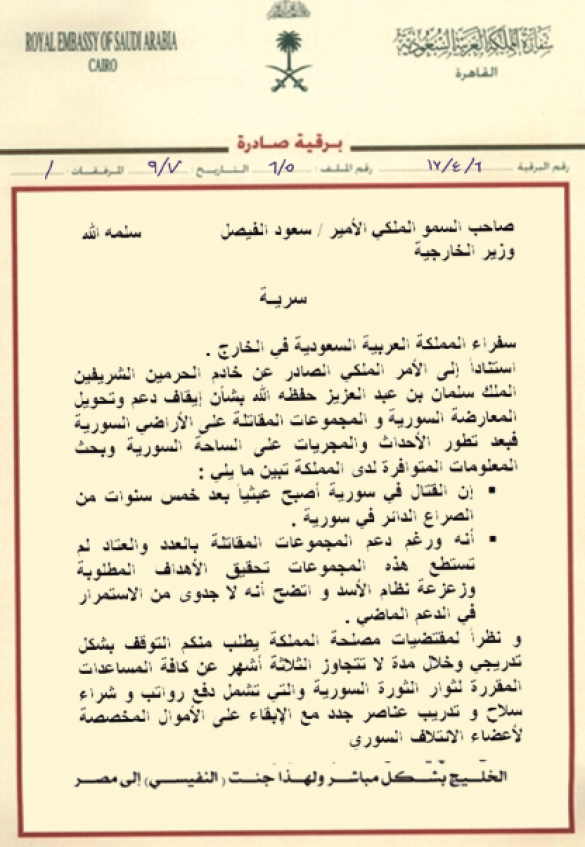 ROYAL EMBASSY OF SAUDI ARABIA
CAIRO
سفارة المملكة العربية السعودية
القاهرة
برقية صادرة
رقم البرقية ١٧/٤/٦ رقم الملف : ٦/٥ التاريخ : ٩/٧ المرفقات : /
صاحب السمو الملكي الأمير / سعود الفيصل سلمه الله
وزير الخارجية
سرية
سفراء المملكة العربية السعودية في الخارج .
استناداً إلى الأمر الملكي الصادر عن خادم الحرمين الشريفين
الملك سلمان بن عبد العزيز حفظه الله بشأن إيقاف دعم وتحويل
المعارضة السورية و المجموعات المقاتلة على الأراضي السورية
فبعد تطور الأحداث والمجريات على الساحة السورية وبحث
المعلومات المتوافرة لدى المملكة تبين ما يلي :
▪ إن القتال في سورية أصبح عبثياً بعد خمس سنوات من
الصراع الدائر في سورية .
▪ أنه ورغم دعم المجموعات المقاتلة بالعدد والعتاد لم
تستطع هذه المجموعات تحقيق الأهداف المطلوبة
وزعزعة نظام الأسد و اتضح أنه لا جدوى من الاستمرار
في الدعم الماضي .
و نظراً لمقتضيات مصلحة المملكة يطلب منكم التوقف بشكل
تدريجي وخلال مدة لا تتجاوز الثلاثة أشهر عن كافة المساعدات
المقررة لثوار الثورة السورية والتي تشمل دفع رواتب و شراء
سلاح و تدريب عناصر جدد مع الإبقاء على الأموال المخصصة
لأعضاء الائتلاف السوري
الخليج بشكل مباشر ولهذا جنت (النفيسي) إلى مصر